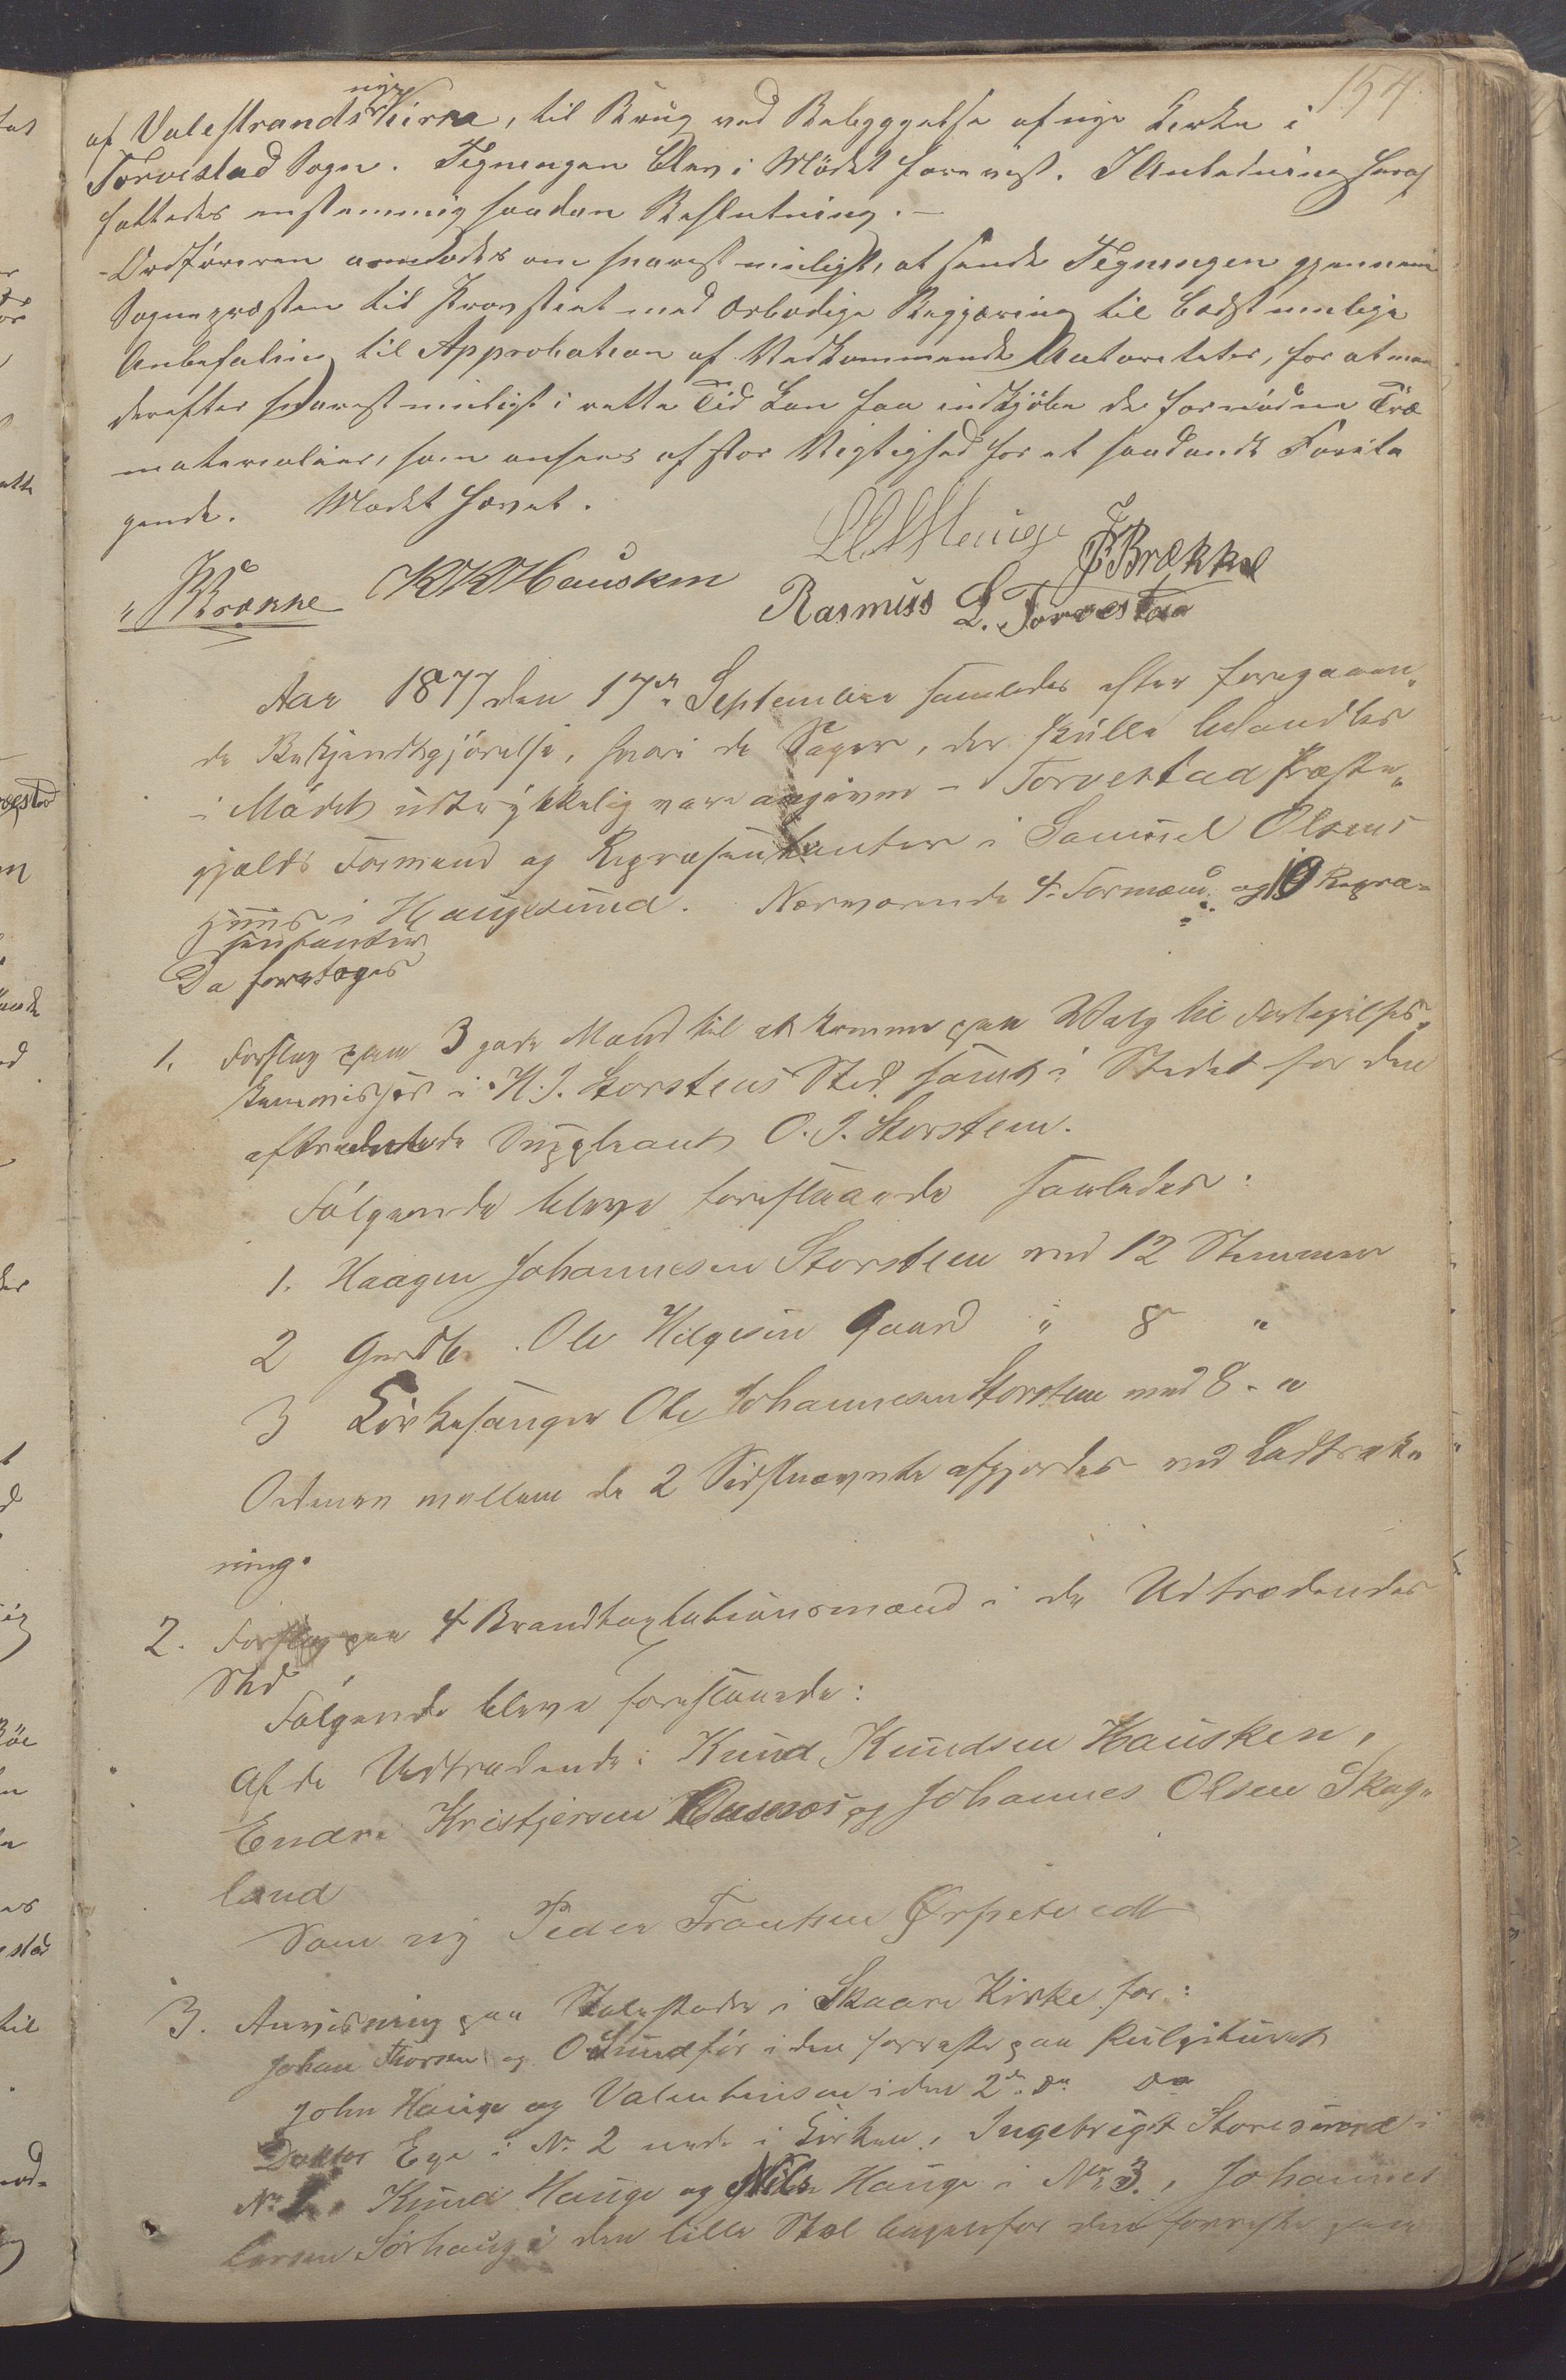 154.
nye
af Valestrands Kirke, til Brug ved Bebyggelse af nye Kirke i
Torvestad Sogn. Tegningen blev i Mödet forevist. I Anledning heraf
fattedes enstemmig saadan Beslutning. –
Ordföreren anmodes om snarest muligst, at sende Tegningen gjennem
Sognepræsten til Provstiet med ærbødige Begjæring til bedst mulige
Anbefaling til Approbation af Vedkommende Autoriteter, for at man
derefter snarest muligst i rette Tid kan faa indkjöbe de fornödne Træ
materialier, som ansees af stor Vigtighed for et saadant Foreta
gende. Mödet hævet.
Hauge
J Brække
KKHausken
Rasmus L. Torvestad
Aar 1877 den 17de September samledes efter foregaaen„
de Bekjendtgjörelse, hvori de Sager, der skulle behandles
i Mödet udtrykkelig vare angivne – Torvestad Præste„
gjelds Formænd og Repræsentanter i Samuel Olsens
Huus i Haugesund. Nærværende 4 Formænd og 10 Repræ=
sentanter
Da foretoges
1. Forslag paa 3 gode Mænd til at komme paa Valg til Forligelses„
kommissær i H. J. Storstens Sted samt i Stedet for den
aftrædende Suppleant O. J. Storsten.
Fölgende bleve foreslaaede saaledes:
1. Haagen Johannesen Storsten med 12 Stemmer
2 Gerdbr. Ole Helgesen Gaard " 8 "
3 Kirkesanger Ole Johannesen Storsten med 8 - "
Ordenen mellem de 2 Sidstnævnte afgjordes ved Lodtræk„
ning.
2. Forslag paa 4 Brandtaxtationsmænd i de Udtrædendes
Sted
Fölgende bleve foreslaaede:
Af de Udtrædende: Knud Knudsen Hausken,
Endre Kristjersen og Johannes Olsen Skag„
land
Som ny Peder Frantsen Ørpetvedt
3. Anvisning paa Stolestader i Skaare Kirke for:
Johan Thorsen og O Sundför i den forreste paa Pulpituret
John Hauge og Valentinsen i den 2de do do
Doktor Ege i No 2 nede i Kirken, Ingebrigt Storesund i
No 1, Knud Hauge og Nils Hauge i No 3, Johannes
Larsen Sörhaug i den lille Stol bagenfor den forreste paa